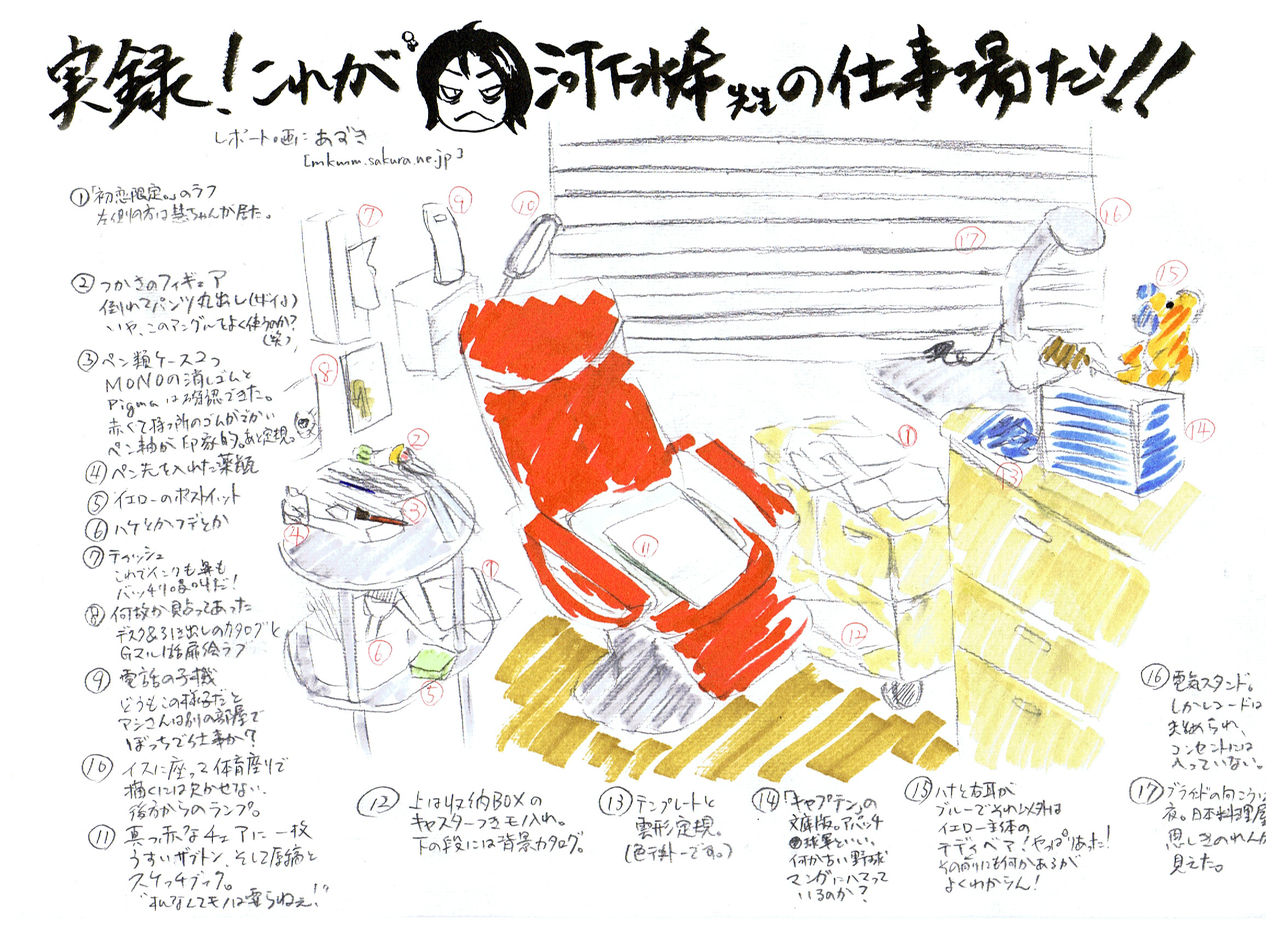 実録!これが河下水希先生の仕事場だ!!
レポート・画:にあずき
[mkmm.sakura.ne.jp]
①「初恋限定。」のラフ
左側の方は慧ちゃんが居た。
②つかさのフィギュア
倒れてパンツ丸出し(ばく)
いや、このアングルでよく使うのか?
(笑)
③ペン類ケース2つ
MONOの消しゴムと
Pigmaは確認できた。
赤くて持つ所のゴムがでかい
ペン軸が印象的。あと定規。
④ペン先を入れた薬瓶
⑤イエローのポストイット
⑥ハケとかフデとか
⑦ティッシュ
これでインクも鼻も
バッチリ吸収だ!
⑧何故か貼ってあった
デスク&引き出しのカタログと
⑨電話の子機
どうもこの様子だと
アシさんは別の部屋で
ぼっちで仕事か?
⑩イスに座って体育座りで
描くには欠かせない、
後方からのランプ。
⑪真っ赤なチェアに一枚
うすいザブトン、そして原稿と
スケッチブック。
⑫上は収納BOXの
キャスターつきモノ入れ。
下の段には背景カタログ。
⑬テンプレートと
雲形定規。
(色テキトーです。)
⑭「キャプテン」の
文庫版。アパッチ
野球軍といい、
何か古い野球
マンガにハマって
いるのか?
⑮ハナと右耳が
ブルーでそれ以外は
イエロー主体の
テディベア!やっぱりあった!
その前にも何かあるが
よくわからん!
⑯電気スタンド。
しかしコードは
まとめられ、
コンセントには
入っていない。
⑰ブラインドの向こうは
夜。日本料理屋
思しきのれんが
見えた。
⑦
⑨
⑩
⑯
⑰
⑮
⑧
②
①
⑭
③
⑬
④
⑪
①
⑫
⑥
⑤